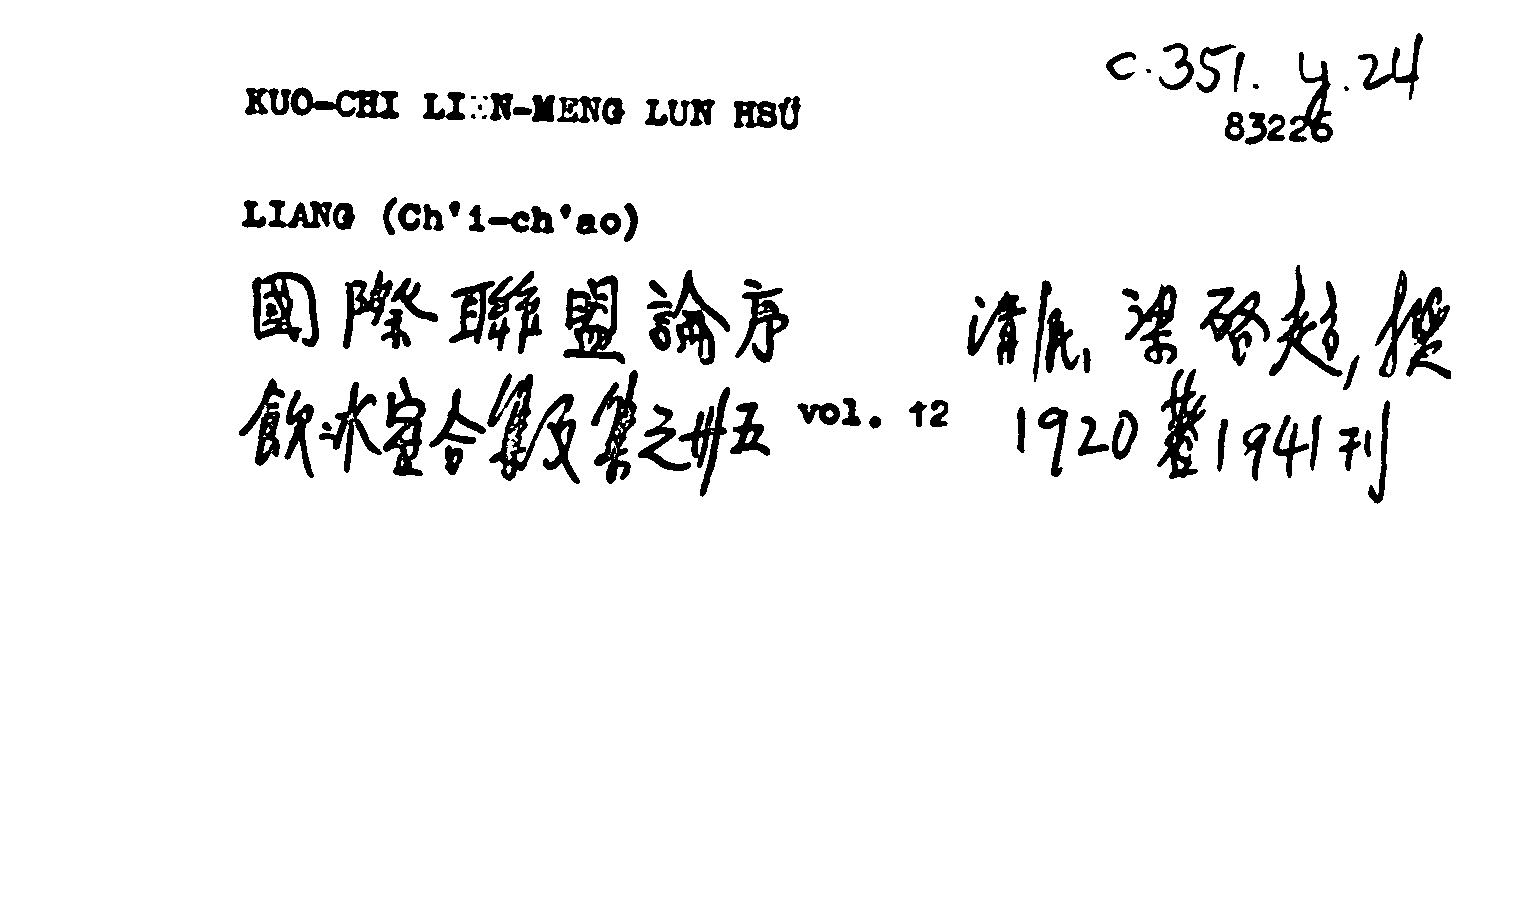 c.351. y.24
KUO-CHI LIEN-MENG LUN HSÜ
83226
LIANG (Ch'i-ch'ao)
國際聯盟論序 清 梁啓超, 撰
飲冰室合集文集之卅五 vol. 12 1920 1941刊